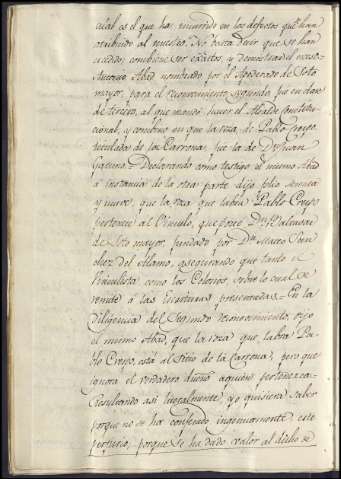 cual es el que ha incurrido en los defectos que han
atribuido al nuestro. No basta decir que se han
cometidos; combiene ser exactos, y demostrarlo.
Antonio Abad nombrado por el Apoderado de Soto
mayor, para el reconocimiento segundo, que en clase
de tercero, al que mandó hacer el Alcalde Constitu
cional, y combino en que la roza de Pablo Crespo
titulada de los Carrona fue la de Dn Juan
Declarando como testigo el mismo Abad
á instancia de la otra parte dijo folio sesenta
y nueve, que la roza que labra Pablo Crespo
pertenece al Vinculo, que posee Dn Baltasar
de Soto mayor, fundado por Dn Marcos San
chez del Alamo, asegurando que tanto el
como los Colonos sobre lo cual se
remite á las escrituras presentadas. En la
diligencia del segundo reconocimiento, dijo
el mismo Abad, que la roza que labra Pa
blo Crespo, está al sitio de la Carrona, pero que
ignora el verdadero dueño aquien pertenezca.
Resultando asi literalmente, yo quisiera saber
porque no se ha confesado ingenuamente este
perjurio, porque se ha dado valor al dicho de